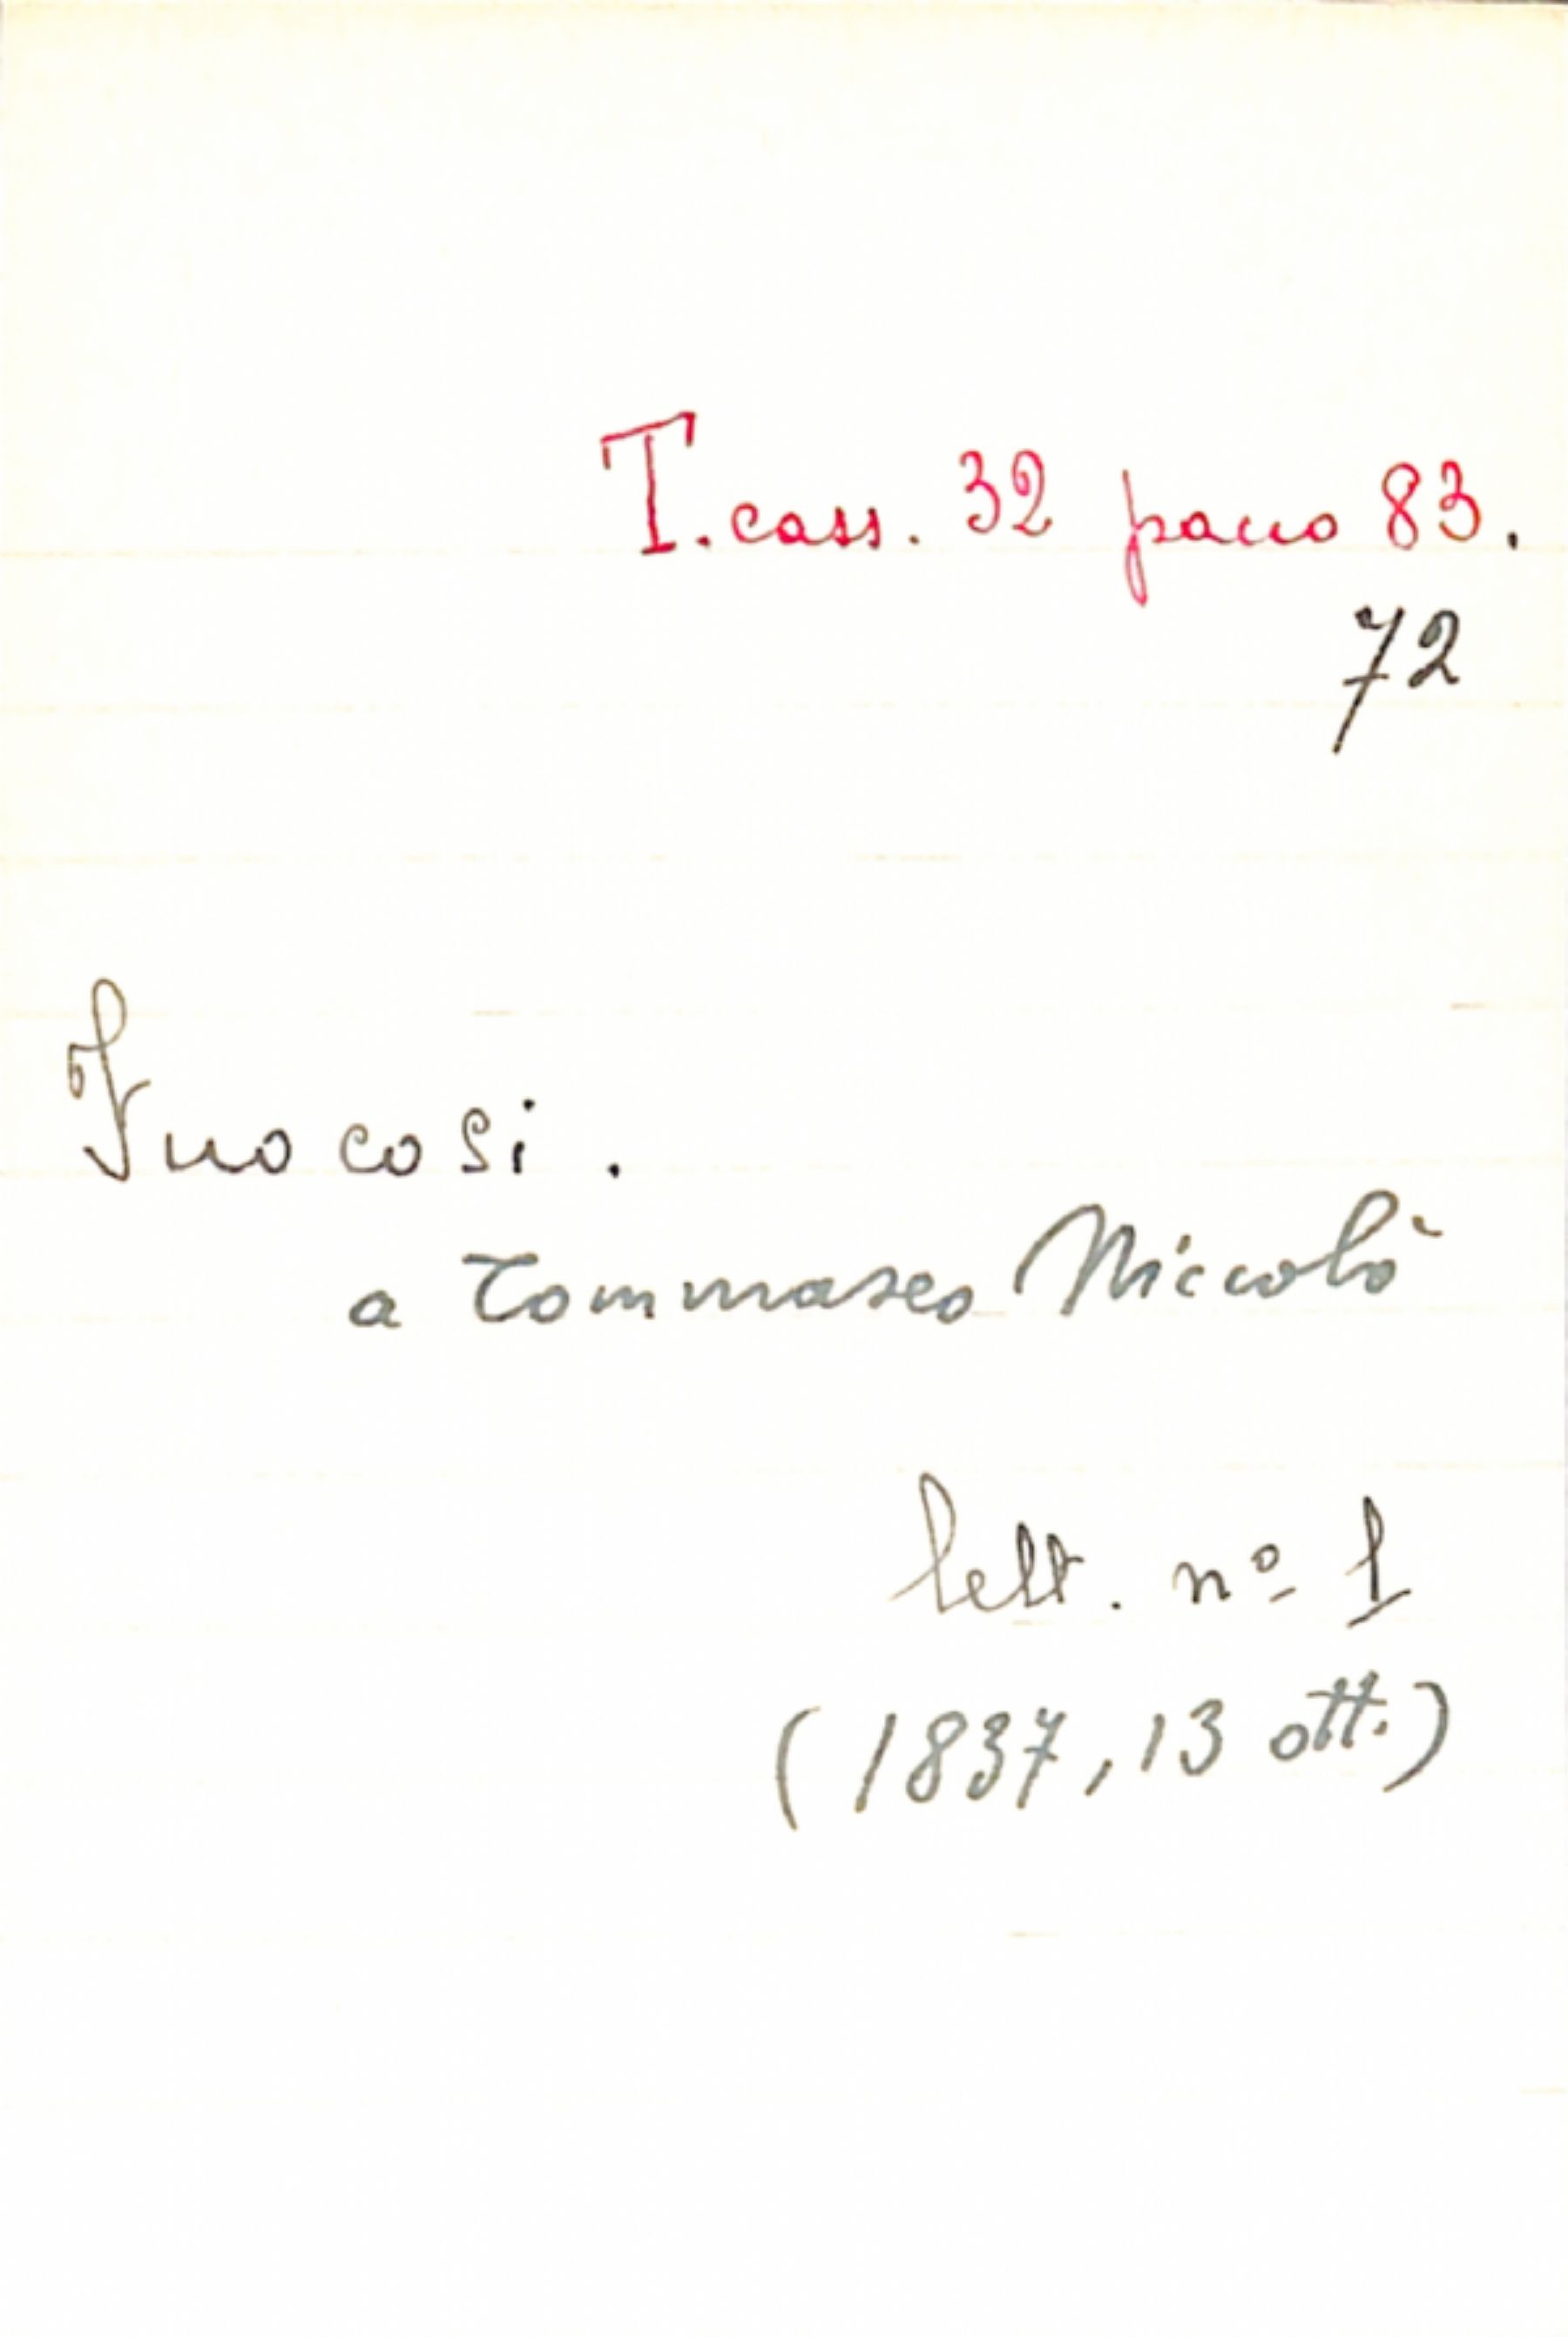 T. cass. 32 pacco 83.
72
Fuocosi.
a Tommaseo Niccolò
lett. nº 1
(1837, 13 ott.)